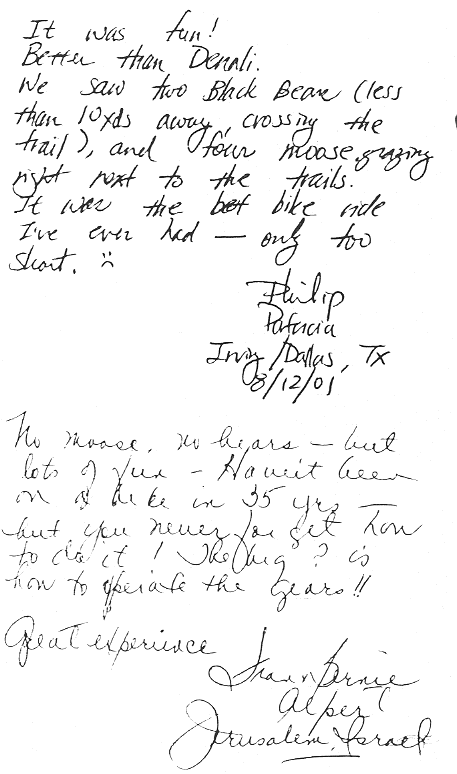 It was fun!
Better than Denali.
We saw two Black Bears (less
than 10 yds away, crossing the
trail), and four moose grazing
right next to the trails.
It was the best bike ride
I've ever had — only too
short. :(
Philip
Patricia
Irving/Dallas, TX
8/12/01
No moose, no bears – but
lots of fun – Haven't been
on a bike in 35 yrs —
but you never forget how
to do it! The big ? is
how to operate the gears!!
Great experience
Bernie
Alpert
Jerusalem, Israel